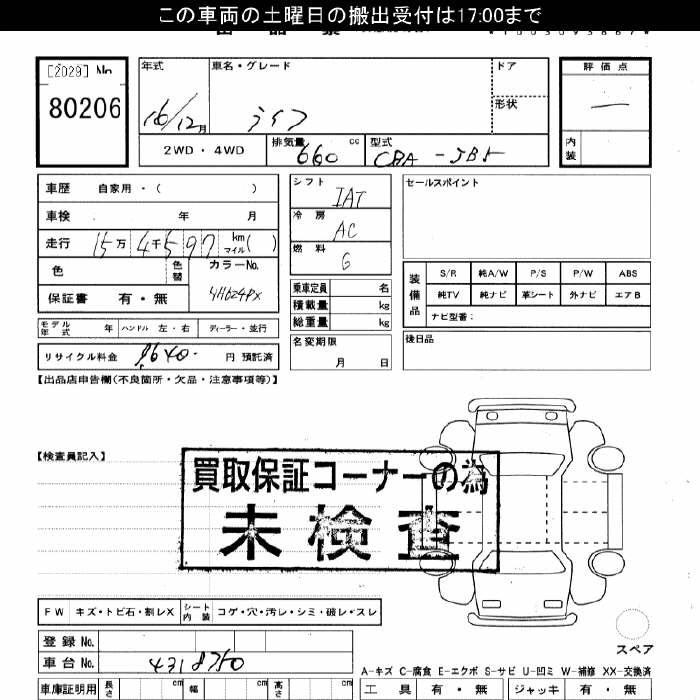 この車両の土曜日の搬出受付は17:00まで
[2029] No
80206
年式
車名・グレード
ドア
形状
評価点
内装
16/12月
ライフ
2WD・4WD
排気量 660 cc
型式 CBA-JB5
車歴 自家用・( )
車検 年 月
走行 15万4千597 km マイル( )
色 色替 カラーNo.
保証書 有・無
シフト IAT
冷房 AC
燃料 G
乗車定員 名
積載量 kg
総重量 kg
名変期限
月 日
セールスポイント
装備品
S/R 純A/W P/S P/W ABS
純TV 純ナビ 革シート 外ナビ エアB
ナビ型番:
後日品
モデル年式 年 ハンドル 左・右 ディーラー・並行
リサイクル料金 9640- 円 預託済
【出品店申告欄(不良箇所・欠品・注意事項等)】
【検査員記入】
買取保証コーナーの為
未検査
FW キズ・トビ石・割レX シート内装 コゲ・穴・汚レ・シミ・破レ・スレ
登録No.
車台No. 4318750
車庫証明用 長さ cm 幅 cm 高さ cm
スペア
A-キズ C-腐食 E-エクボ S-サビ U-凹ミ W-補修 XX-交換済
工具 有・無 ジャッキ 有・無